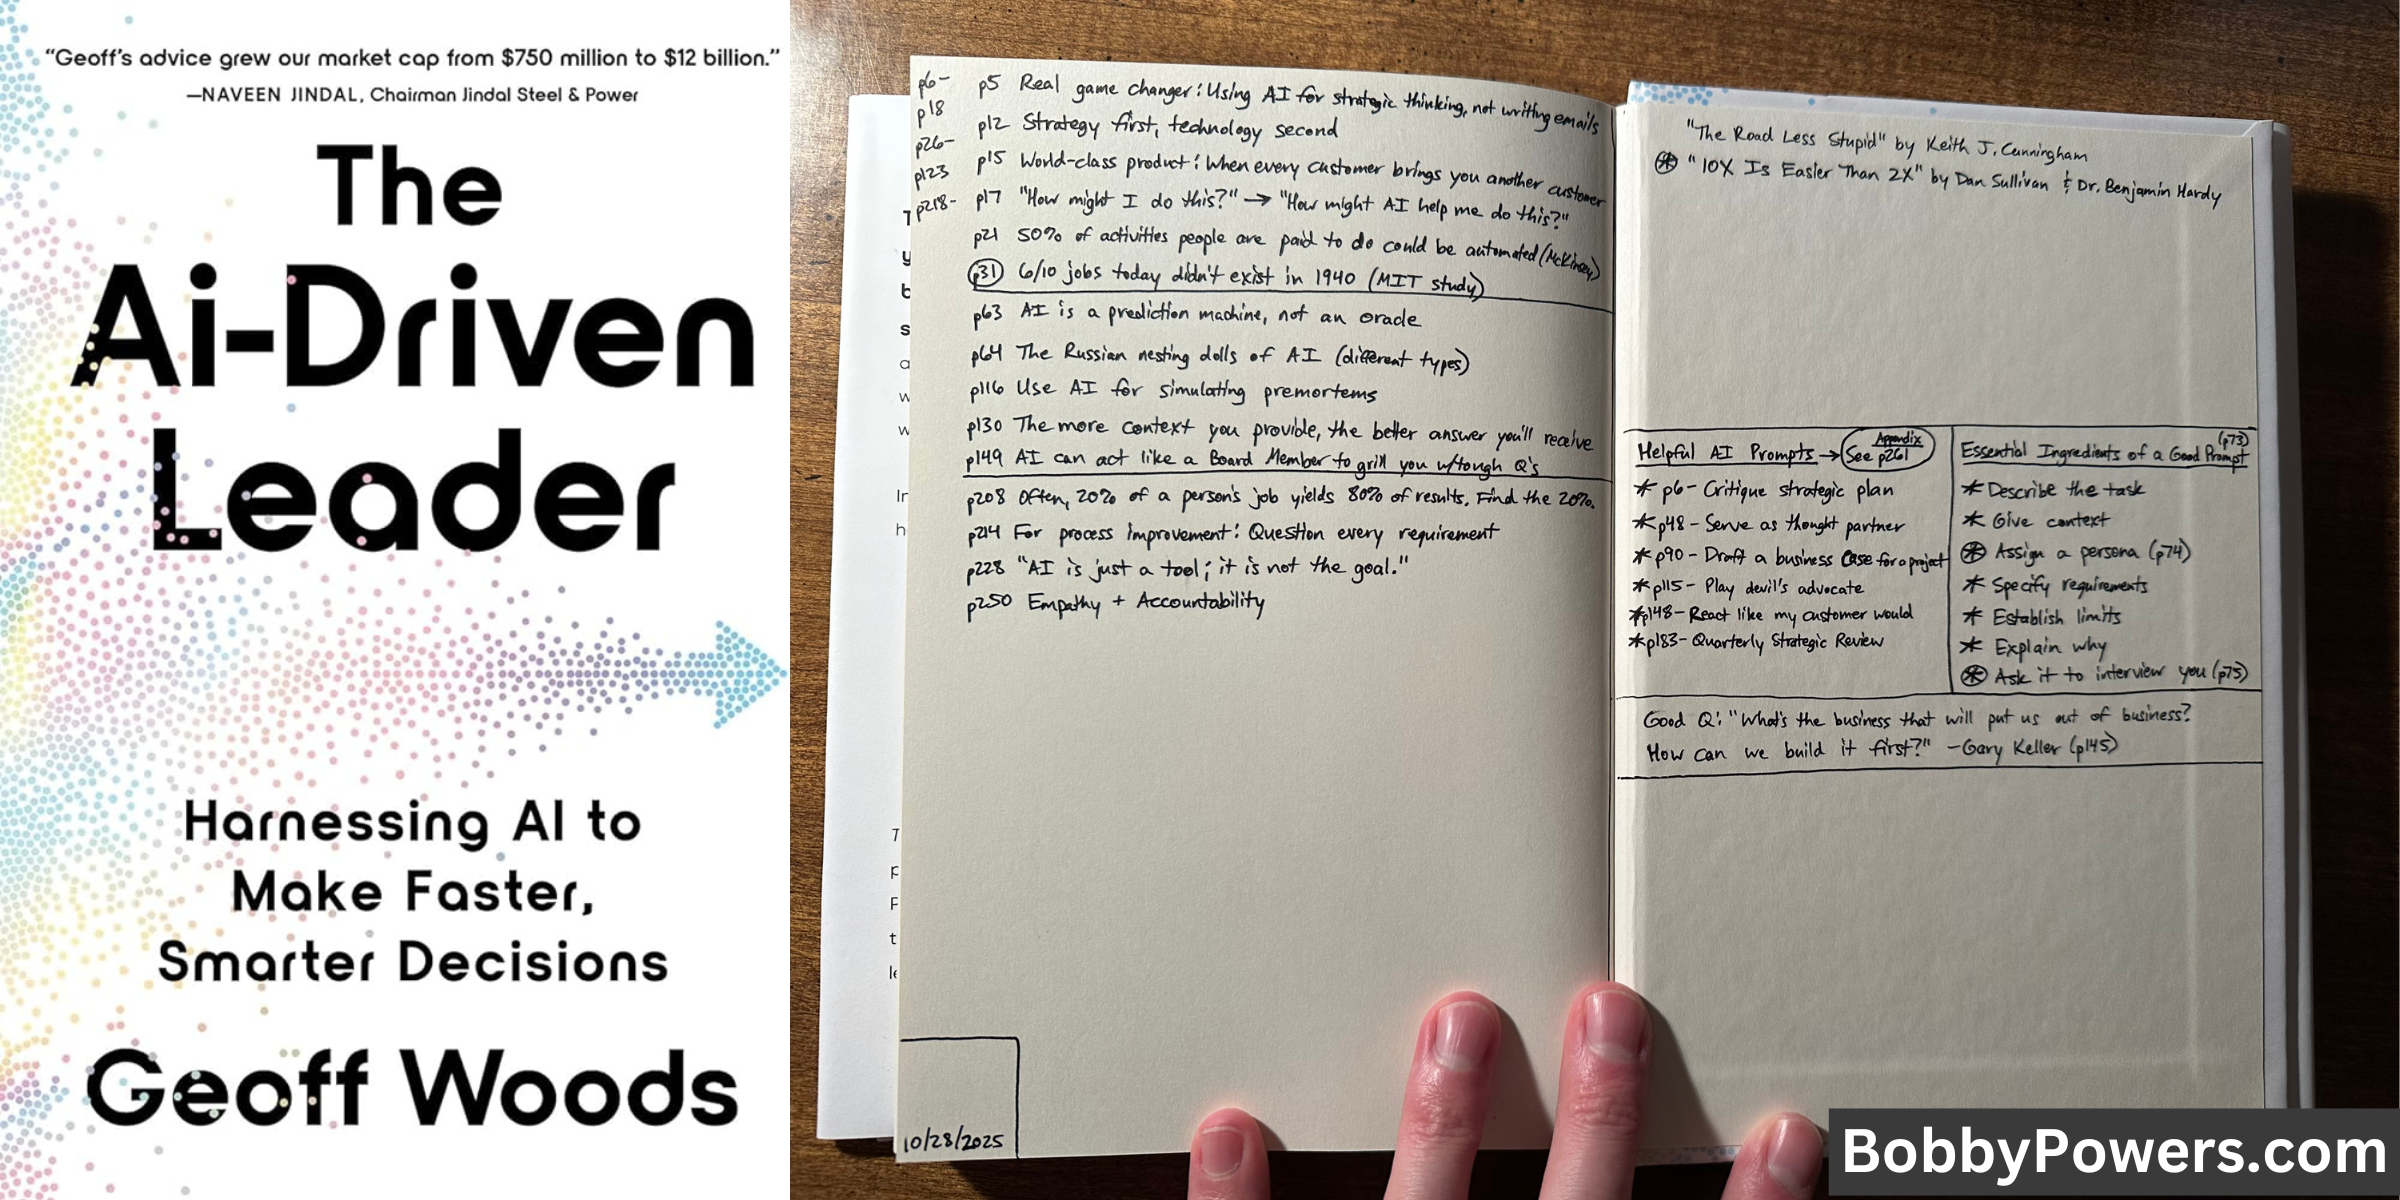 “Geoff’s advice grew our market cap from $750 million to $12 billion.”
—NAVEEN JINDAL, Chairman Jindal Steel & Power
The
Ai-Driven
Leader
Harnessing AI to
Make Faster,
Smarter Decisions
Geoff Woods
p6-
p18
p26-
p123
p218-
p5 Real game changer: Using AI for strategic thinking, not writing emails
p12 Strategy first, technology second
p15 World-class product: When every customer brings you another customer
p17 "How might I do this?" → "How might AI help me do this?"
p21 50% of activities people are paid to do could be automated (McKinsey)
p31 6/10 jobs today didn't exist in 1940 (MIT study)
p63 AI is a prediction machine, not an oracle
p64 The Russian nesting dolls of AI (different types)
p116 Use AI for simulating premortems
p130 The more context you provide, the better answer you'll receive
p149 AI can act like a Board Member to grill you w/tough Q's
p208 Often, 20% of a person's job yields 80% of results. Find the 20%.
p214 For process improvement: Question every requirement
p228 "AI is just a tool; it is not the goal."
p250 Empathy + Accountability
10/28/2025
"The Road Less Stupid" by Keith J. Cunningham
* "10X Is Easier Than 2X" by Dan Sullivan & Dr. Benjamin Hardy
Helpful AI Prompts → See Appendix p261
* p6- Critique strategic plan
* p48- Serve as thought partner
* p90- Draft a business case for a project
* p115- Play devil's advocate
* p148- React like my customer would
* p183- Quarterly Strategic Review
Essential Ingredients of a Good Prompt (p73)
* Describe the task
* Give context
* Assign a persona (p74)
* Specify requirements
* Establish limits
* Explain why
* Ask it to interview you (p75)
Good Q: "What's the business that will put us out of business?
How can we build it first?" -Gary Keller (p145)
BobbyPowers.com